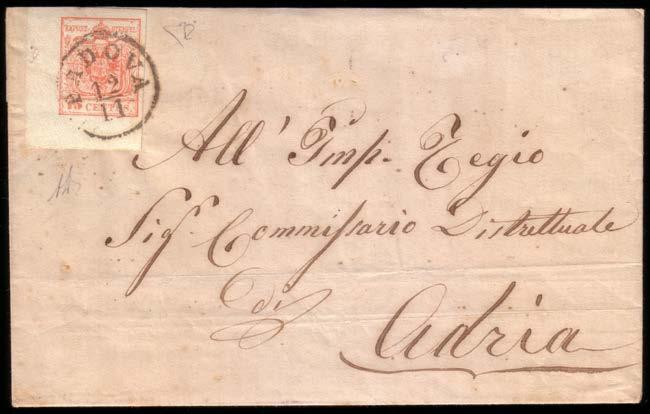 KAIS. KOEN. POST-STEMPEL
PADOVA
12
11
15 CENTES.
All' Imp. Regio
Sig.r Commissario Distrettuale
di
Adria